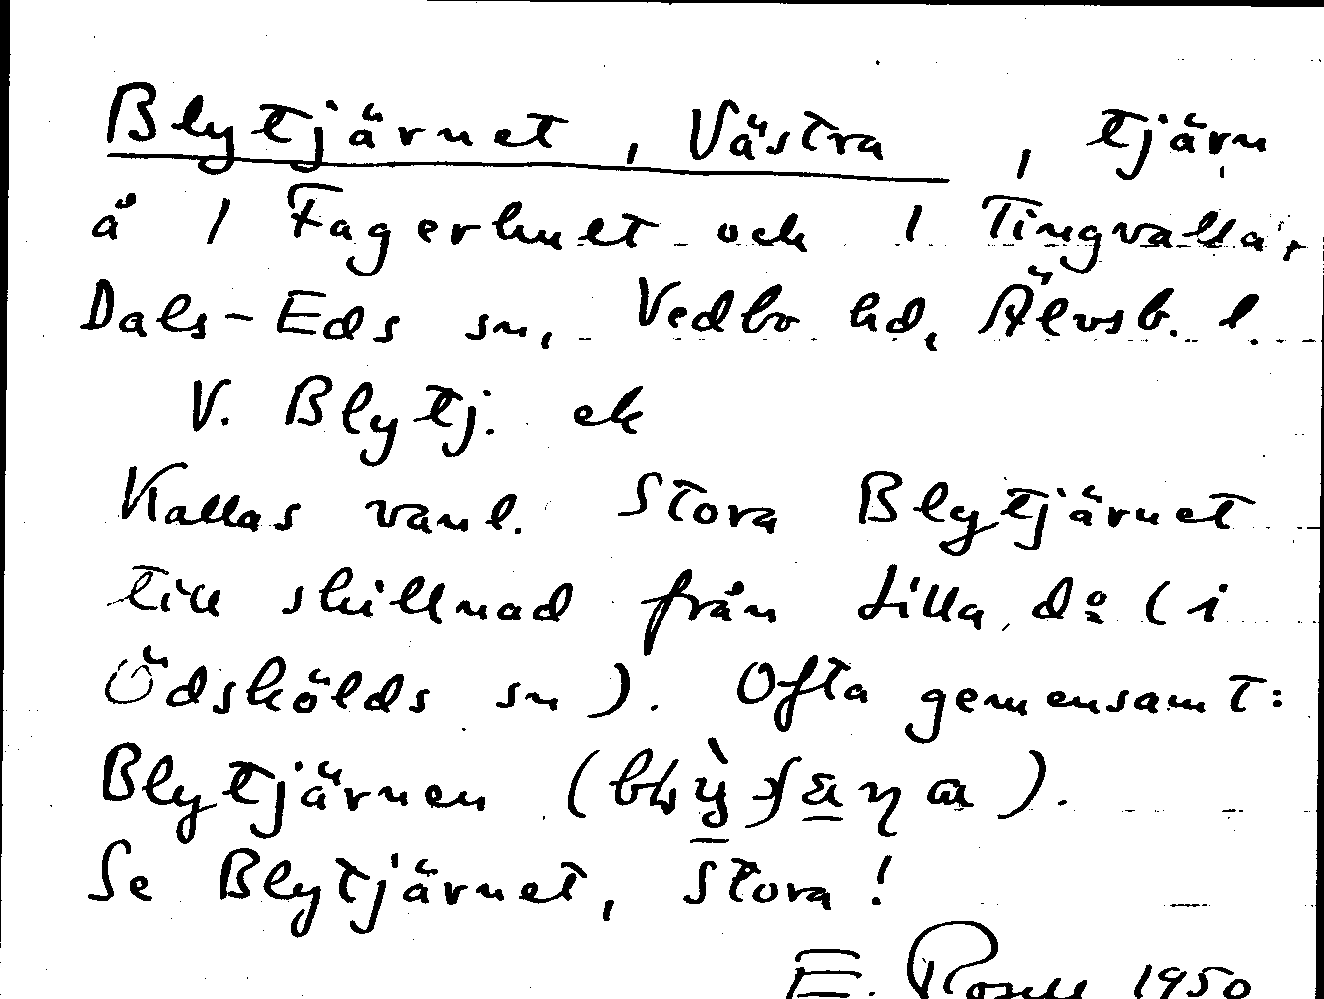 Blytjärnet, Västra, tjärn
å 1 Fagerhult och 1 Tingvalla,
Dals-Eds sn, Vedbo hd, Älvsb. l.
V. Blytj. ek
Kallas vanl. Stora Blytjärnet
till skillnad från Lilla do (i
Ödskölds sn). Ofta gemensamt:
Blytjärnen
Se Blytjärnet, Stora!
E. 1950